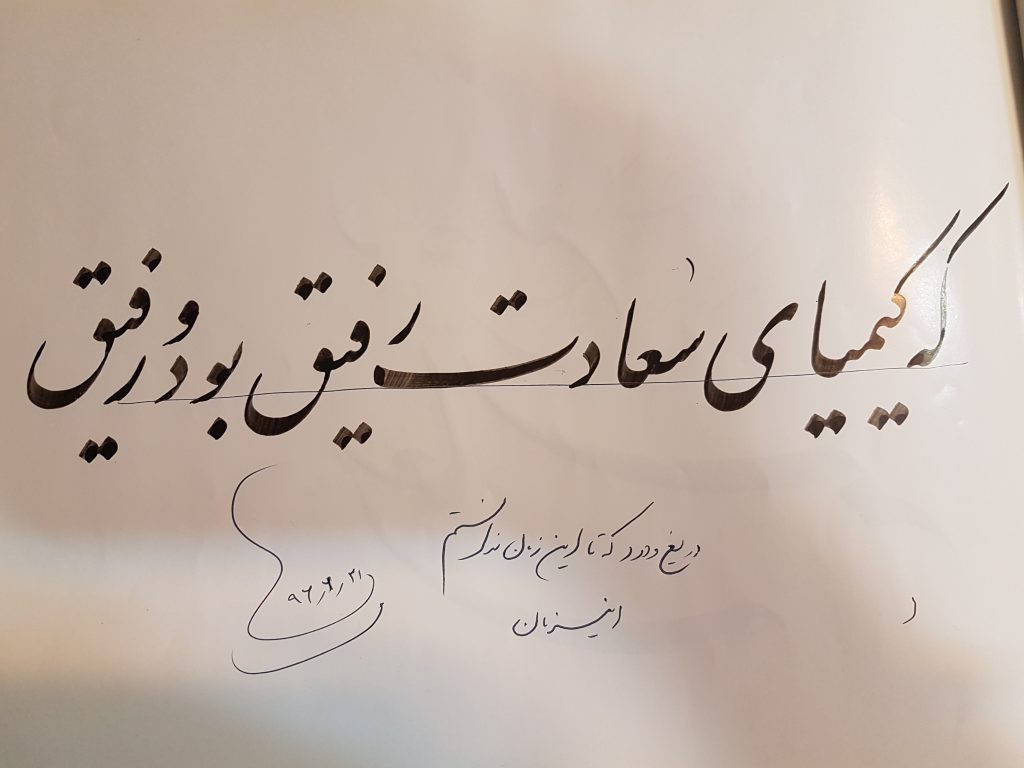 که کیمیای سعادت رفیق بود رفیق
دریغ و درد که تا این زمان ندانستم
این زمان
۹۶/۶/۲۱